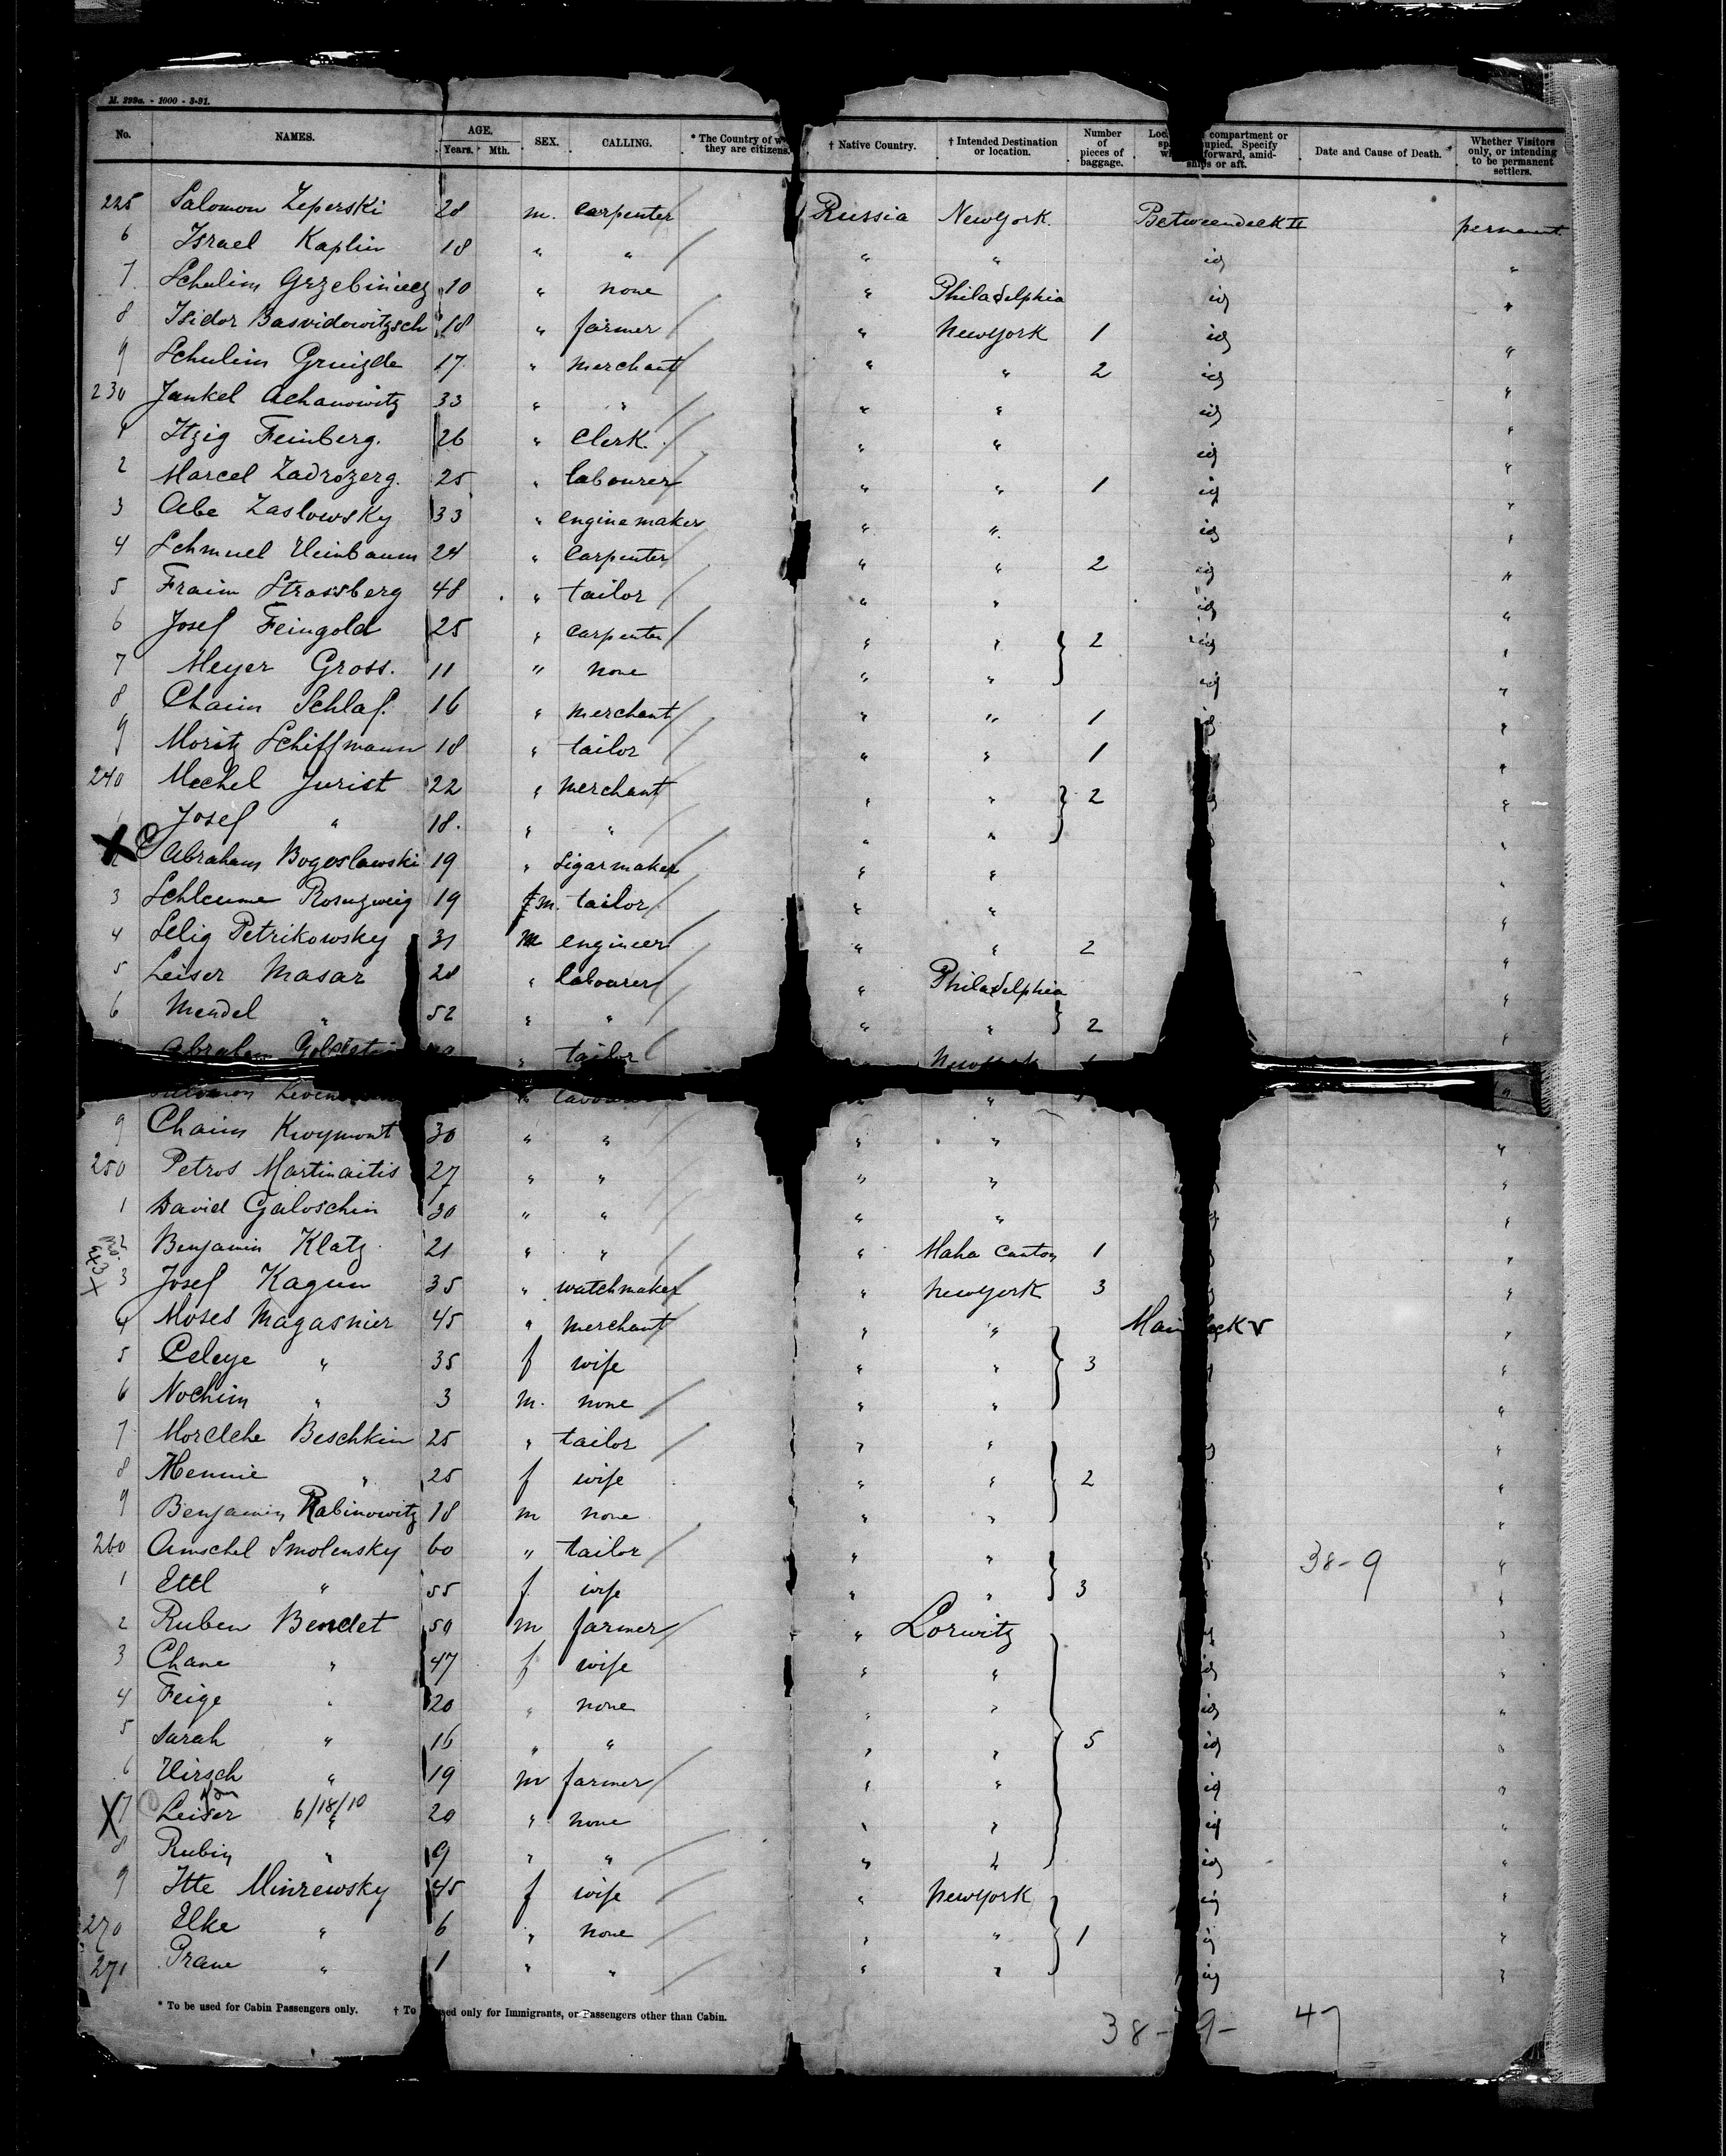 M. 299a. - 1000 - 3-91.
No. NAMES. AGE. Years. Mth. SEX. CALLING. * The Country of they are citizens. † Native Country. † Intended Destination or location. Number of pieces of baggage. compartment or Specify forward, amidships or aft. Date and Cause of Death. Whether Visitors only, or intending to be permanent settlers.
225 Salomon Zeperski 28 m. carpenter Russia New York Betweendeck II permanent
6 Israel Kaplin 18 " " " " id "
7 Schulim Grzebiniecz 10 " none " Philadelphia id "
8 Isidor Basvidowitzsch 18 " farmer " New York 1 id "
9 Schulim Gruizde 17 " merchant " " 2 id "
230 Jankel Achanowitz 33 " " " " id "
1 Itzig Feinberg. 26 " Clerk. " " id "
2 Marcel Zadrozerg. 25 " labourer " " 1 id "
3 Abe Zaslowsky 33 " engine maker " " id "
4 Schmuel Weinbaum 24 " Carpenter " " 2 id "
5 Fraim Strassberg 48 " tailor " " id "
6 Josef Feingold 25 " carpenter " " 2 id "
7 Meyer Gross. 11 " none " " id "
8 Chaim Schlaf. 16 " merchant " " 1 id "
9 Moritz Schiffmann 18 " tailor " " 1 "
240 Mechel Jurist 22 " merchant " " 2 "
1 Josef " 18. " " " " "
X 2 Abraham Bogoslawski 19 " Sigarmaker " " "
3 Schleume Rosuzweig 19 m. tailor " " "
4 Selig Petrikowsky 31 m engineer " " 2 "
5 Leiser Masar 28 " labourer " Philadelphia "
6 Mendel " 52 " " " " 2 "
Abraham " tailor New York
Salomon "
9 Chaim Kroymont 30 " " " " "
250 Petros Martinaitis 27 " " " " "
1 David Galoschin 30 " " " " "
2 Benjamin Klatz 21 " " " Maha Canton 1 "
3 Josef Kagun 35 " watchmaker " New York 3 "
4 Moses Magasnier 45 " merchant " " "
5 Celeye " 35 f wife " " 3
6 Nochim " 3 m. none " " "
7 Mordche Beschkin 25 " tailor " " "
8 Mennie " 25 f wife " " 2 "
9 Benjamin Rabinowitz 18 m none " " "
260 Amschel Smolensky 60 " tailor " " 38-9 "
1 Ettl " 55 f wife " " 3 "
2 Ruben Bendet 50 m farmer " Lorwitz "
3 Chane " 47 f wife " " id "
4 Feige " 20 " none " " id "
5 Sarah " 16 " " " " 5 id "
6 Hirsch " 19 m farmer " " id "
X 7 Leiser 6/18/10 " 20 " none " " id "
8 Rubin " 9 " " " " id "
9 Itte Minzewsky 45 f wife " New York id "
270 Elke " 6 " none " " 1 id "
271 Prane " 1 " " " " id "
* To be used for Cabin Passengers only. † To used only for Immigrants, or Passengers other than Cabin.
38- 9- 47